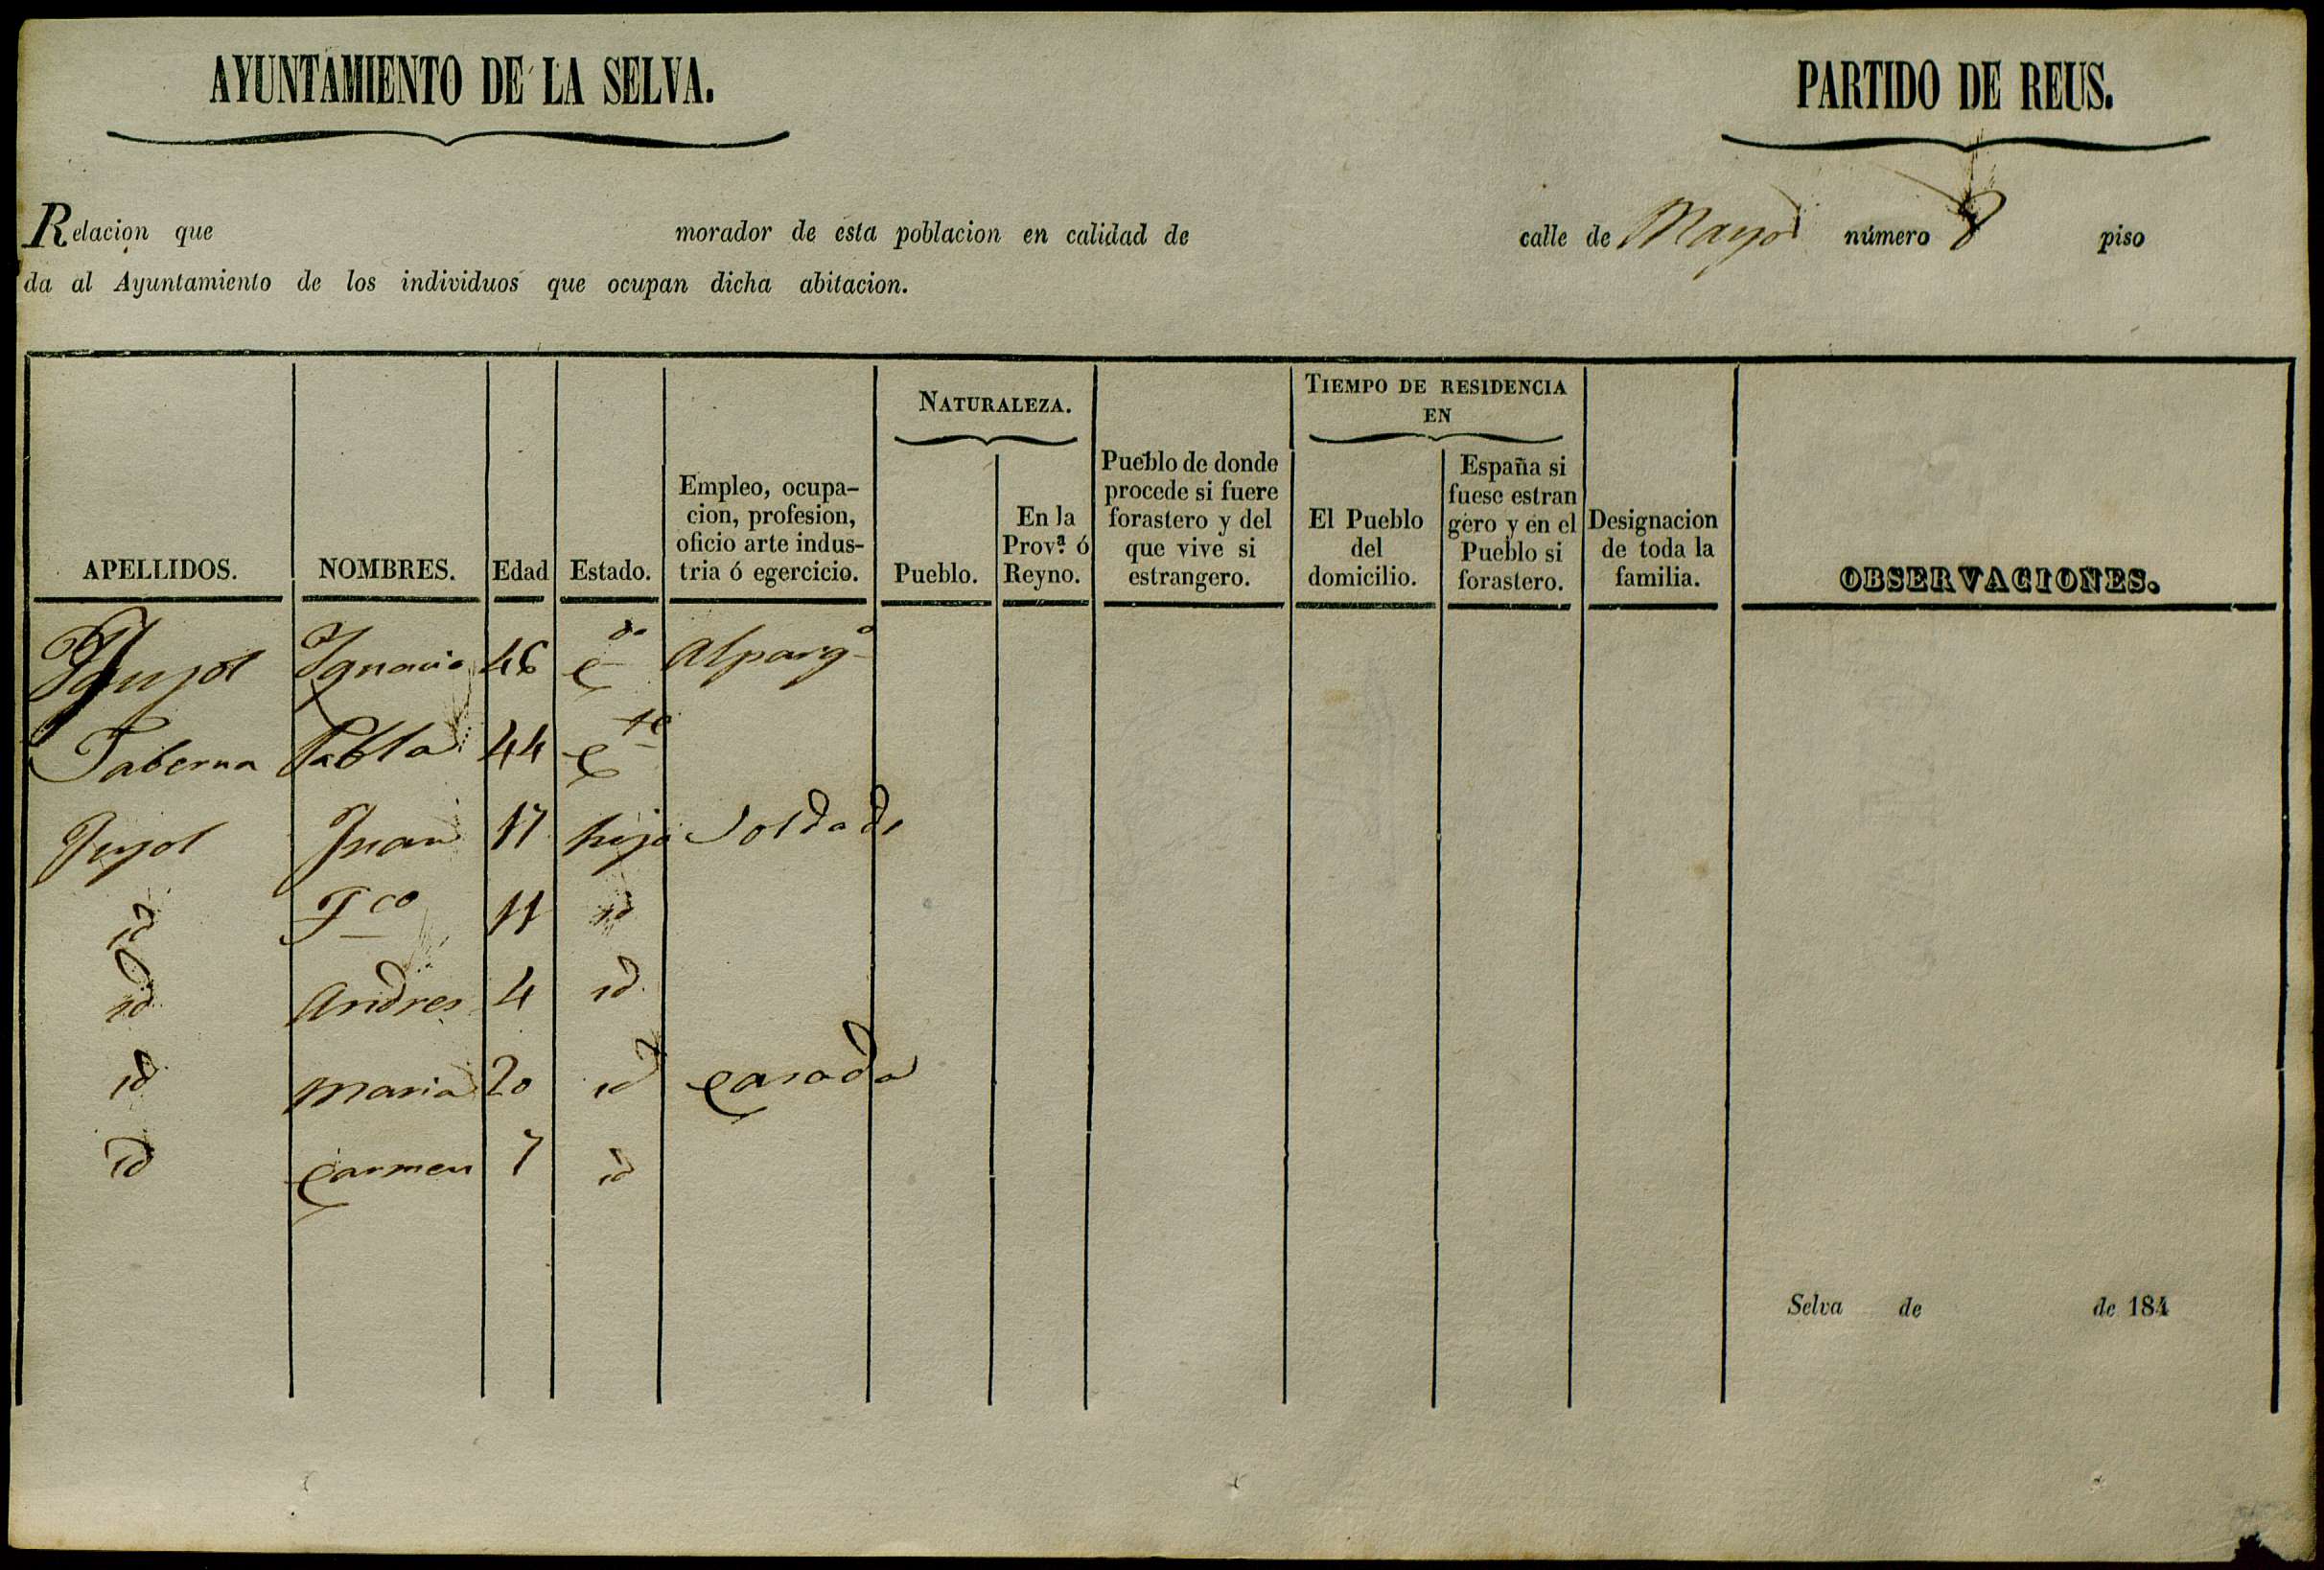 AYUNTAMIENTO DE LA SELVA.
PARTIDO DE REUS.
Relacion que morador de esta poblacion en calidad de calle de Mayor número 8 piso
da al Ayuntamiento de los individuos que ocupan dicha abitacion.
APELLIDOS.
NOMBRES.
Edad
Estado.
Empleo, ocupa-
cion, profesion,
oficio arte indus-
tria ó egercicio.
NATURALEZA.
Pueblo.
En la
Prov.ª ó
Reyno.
Pueblo de donde
procede si fuere
forastero y del
que vive si
estrangero.
TIEMPO DE RESIDENCIA
EN
El Pueblo
del
domicilio.
España si
fuese estran
gero y en el
Pueblo si
forastero.
Designacion
de toda la
familia.
OBSERVACIONES.
Ignacio 46 C.do Alparg.o
Taberna Pabla 44 C.te
Pujol Juan 17 hijo Soldado
id Fco 11 id
id Andres 4 id
id Maria 20 id Casada
id Carmen 7 id
Selva de de 184